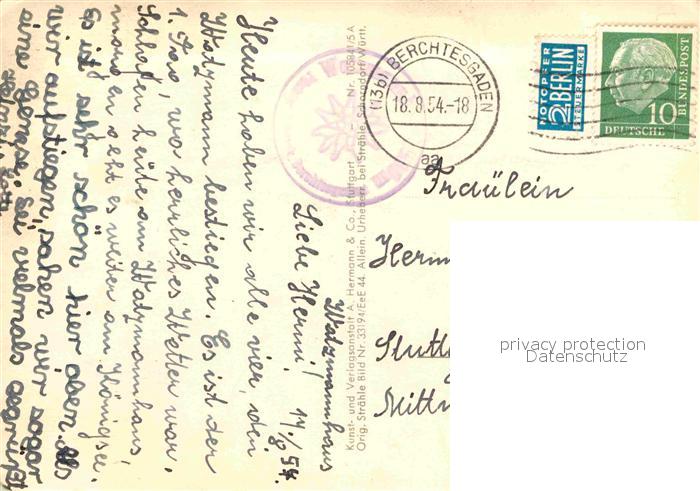 Watzmannhaus
Liebe Hermi! 17/8 54.
Heute haben wir alle vier, den
Watzmann bestiegen. Es ist der
1. Tag, wo herrliches Wetter war.
Schlafen heute am Watzmannhaus,
morgen geht es weiter am Königsee.
Es ist sehr schön hier oben. Als
wir aufstiegen, sahen wir sogar
eine Gemse. Sei vielmals gegrüßt
Kunst- und Verlagsanstalt A. Hermann & Co., Stuttgart — Nr. 10584/5 A
Orig. Strähle Bild Nr. 33194/EeE 44. Allein. Urheberr. bei Strähle, Schorndorf/Württ.
(13b) BERCHTESGADEN
18.8.54.-18
aa
NOTOPFER
2 BERLIN
STEUERMARKE
DEUTSCHE BUNDESPOST
10
Fräulein
Herm
Stuttg
Mittn
privacy protection
Datenschutz